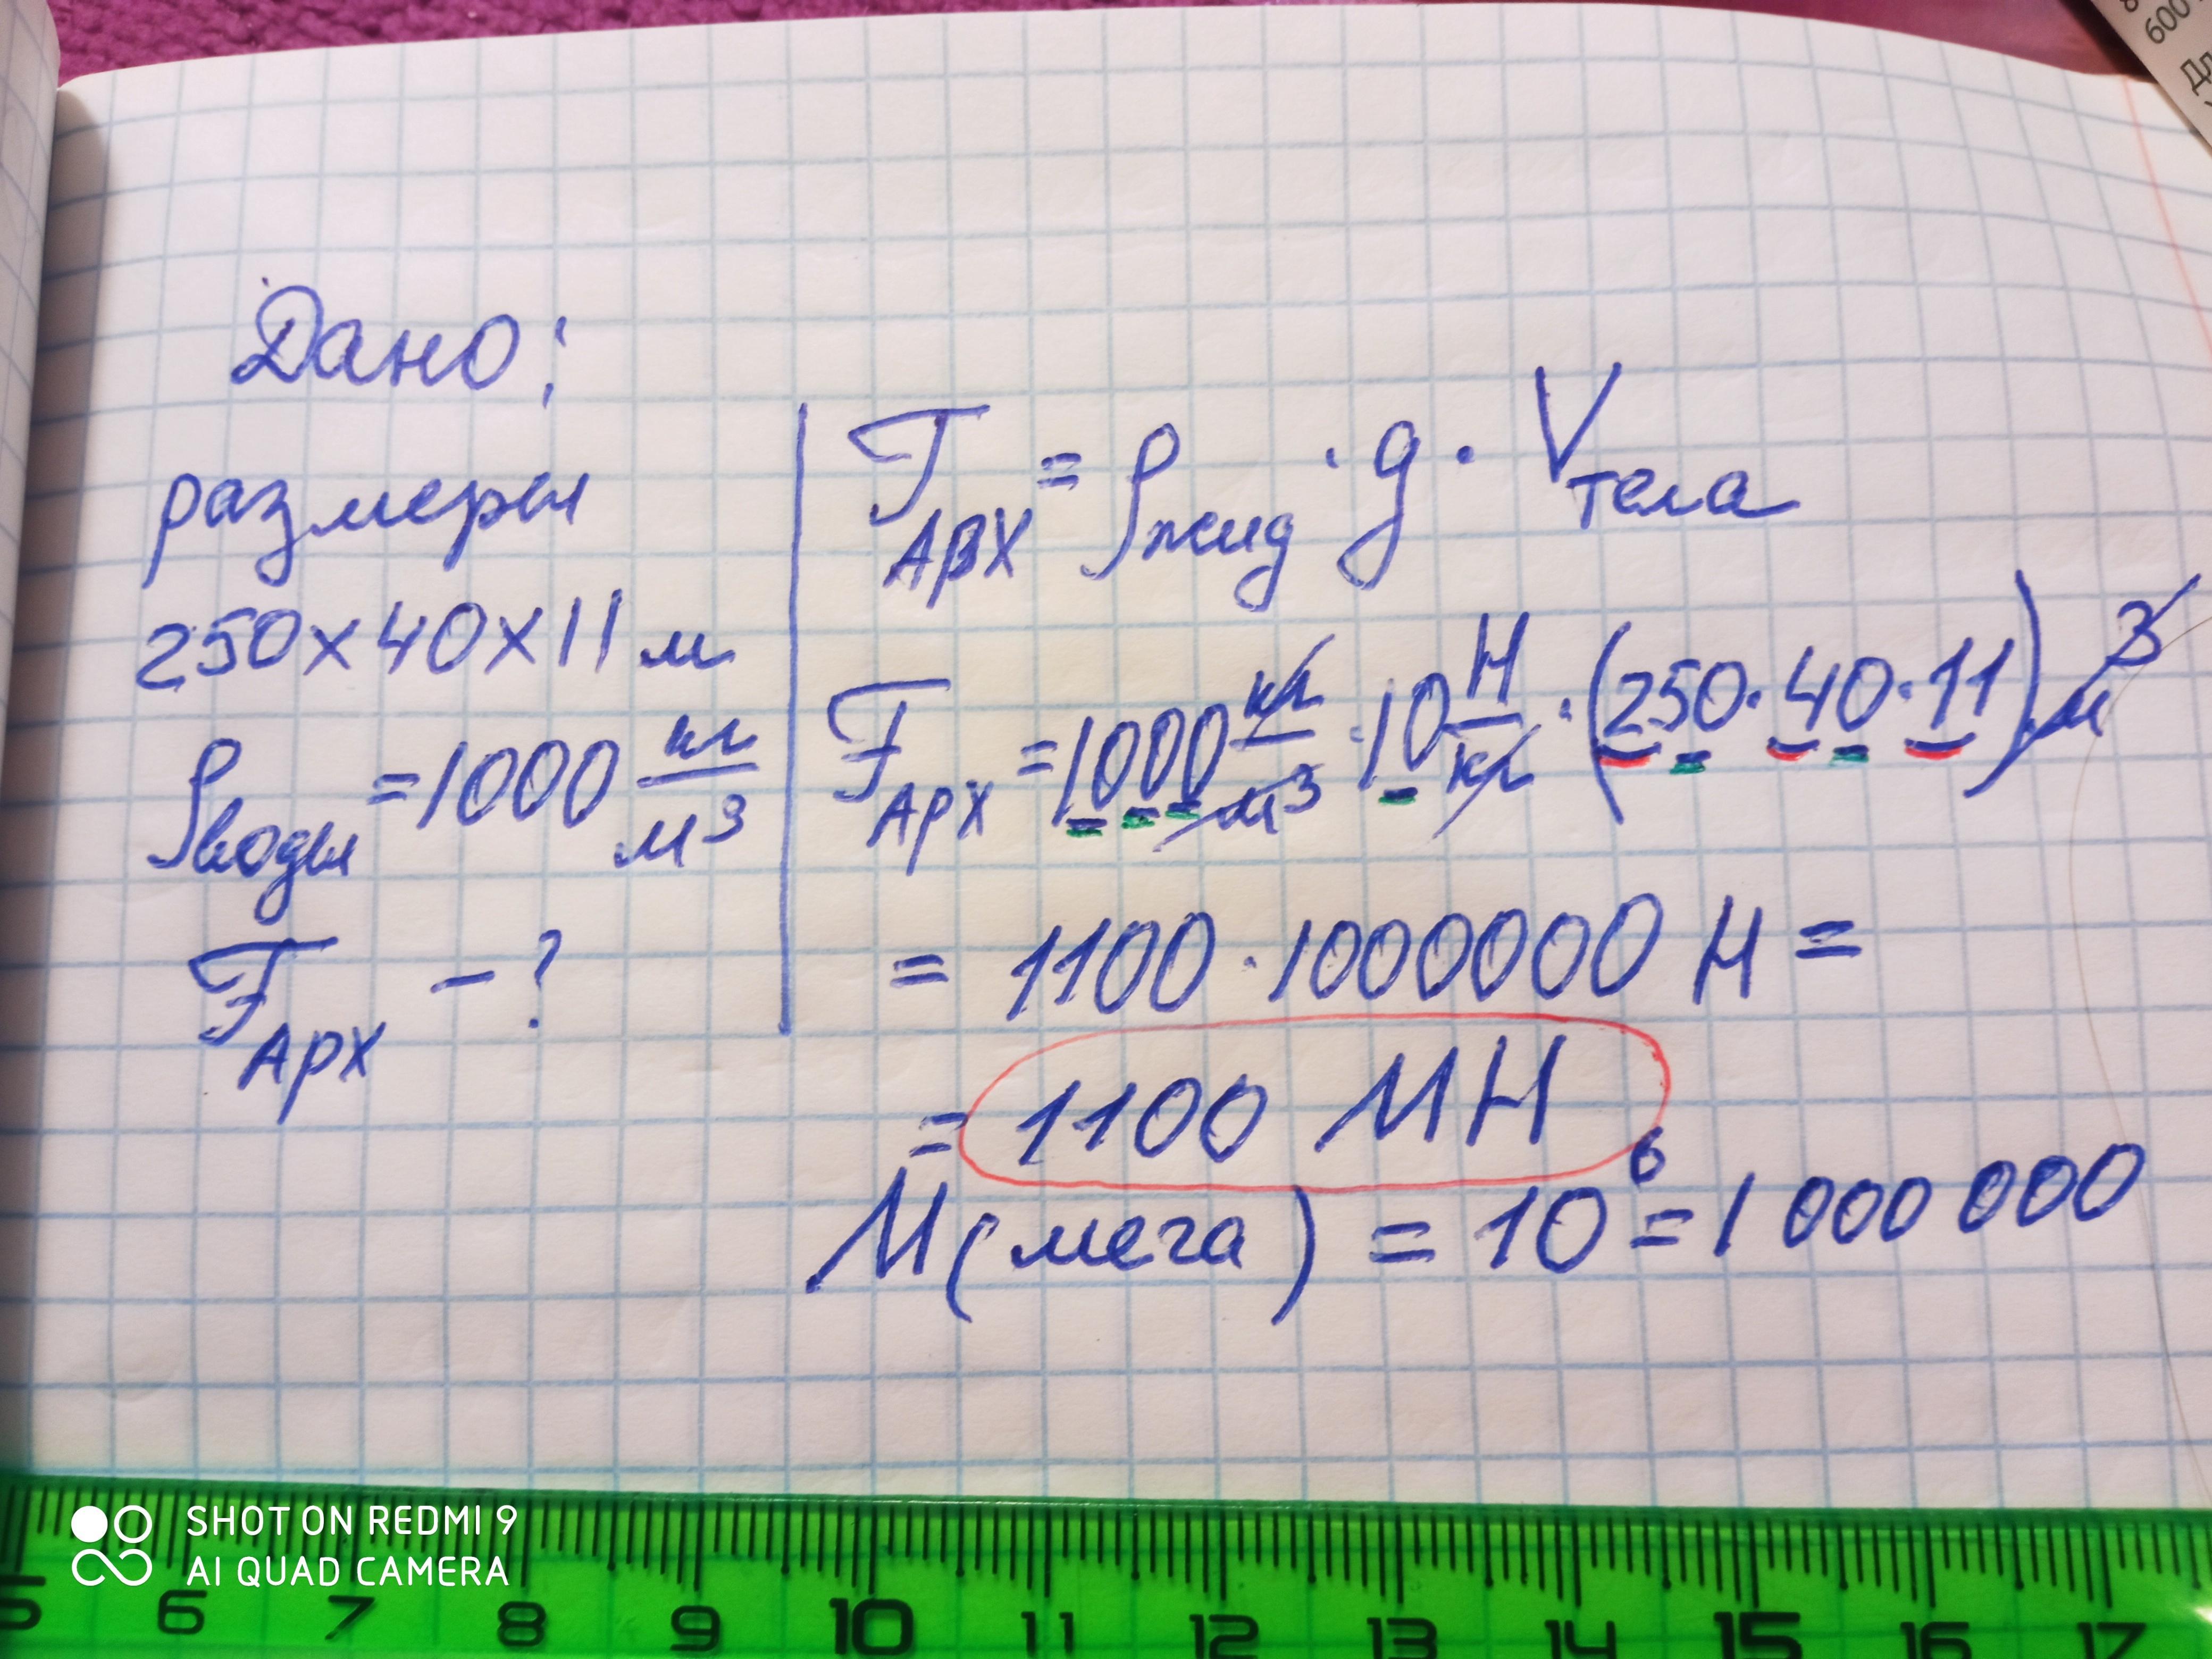 Дано:
размеры
250х40х11 м
ρводы = 1000 кг/м³
Fарх – ?
FАРХ = ρжид · g · Vтела
FАрх = 1000 кг/м³ · 10 Н/кг · (250 · 40 · 11) м³
= 1100 · 1000000 Н =
= 1100 МН
М (мега) = 10⁶ = 1 000 000
600
Дл
SHOT ON REDMI 9
AI QUAD CAMERA
5 6 7 8 9 10 11 12 13 14 15 16 17